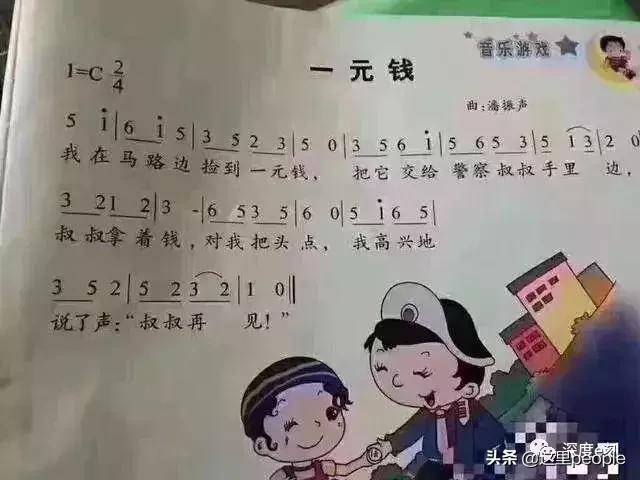 音乐游戏
1=C 2/4
一元钱
曲:潘振声
5 i|6 i 5|3 5 2 3|5 0|3 5 6 i|5 6 5 3|5 1 3|2 0
我在马路边捡到一元钱，把它交给警察叔叔手里边，
3 2 1 2|3 -|6 5 3 5|6 0|5 i 6 5|
叔叔拿着钱，对我把头点，我高兴地
3 5 2|5 2 3 2|1 0‖
说了声：“叔叔再见！”
深度e刻
头条 @这里people